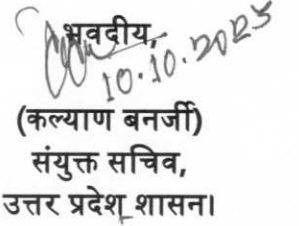 भवदीय,
10.10.2025
(कल्याण बनर्जी)
संयुक्त सचिव,
उत्तर प्रदेश शासन।